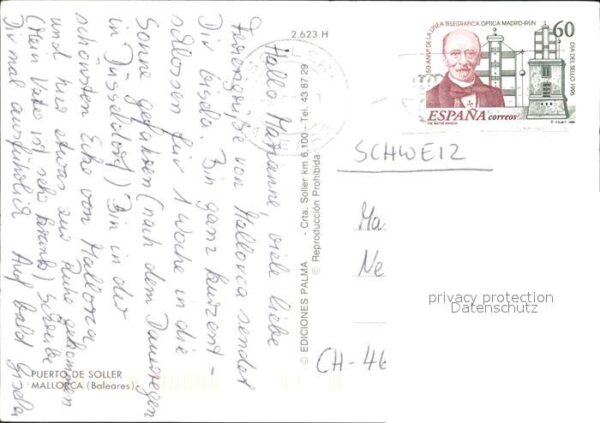 2.623 H
150 ANIV. DE LA LINEA TELEGRAFICA OPTICA MADRID-IRUN
60
DIA DEL SELLO 1996
ESPAÑA correos
Hallo Marianne, viele liebe
Feriengrüße von Mallorca sendet
Dir Gisela. Bin ganz kurzent-
schlossen für 1 Woche in die
Sonne gefahren (nach dem Dauerregen
in Düsseldorf) Bin in der
schönsten Ecke von Mallorca
und hier etwas zur Ruhe gekommen
(Mein Vater ist sehr krank) Schreibe
Dir mal ausführlich Auf bald Gisela
© EDICIONES PALMA - Crta. Soller km 6,100 - Tel. 43 87 29
© Reproducción Prohibida
PUERTO DE SOLLER
MALLORCA (Baleares)
SCHWEIZ
Ma
Ne
CH-46
privacy protection
Datenschutz